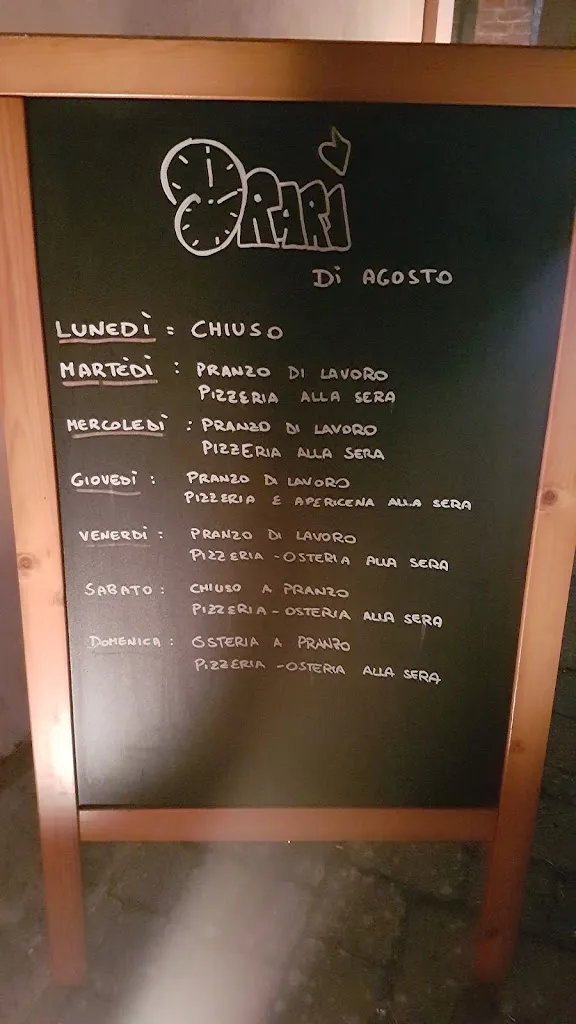 ORARI
Di AGOSTO
LUNEDÌ = CHIUSO
MARTEDÌ : PRANZO DI LAVORO
PIZZERIA ALLA SERA
MERCOLEDÌ : PRANZO DI LAVORO
PIZZERIA ALLA SERA
GIOVEDÌ : PRANZO DI LAVORO
PIZZERIA E APERICENA ALLA SERA
VENERDÌ : PRANZO DI LAVORO
PIZZERIA - OSTERIA ALLA SERA
SABATO : CHIUSO A PRANZO
PIZZERIA - OSTERIA ALLA SERA
DOMENICA : OSTERIA A PRANZO
PIZZERIA - OSTERIA ALLA SERA